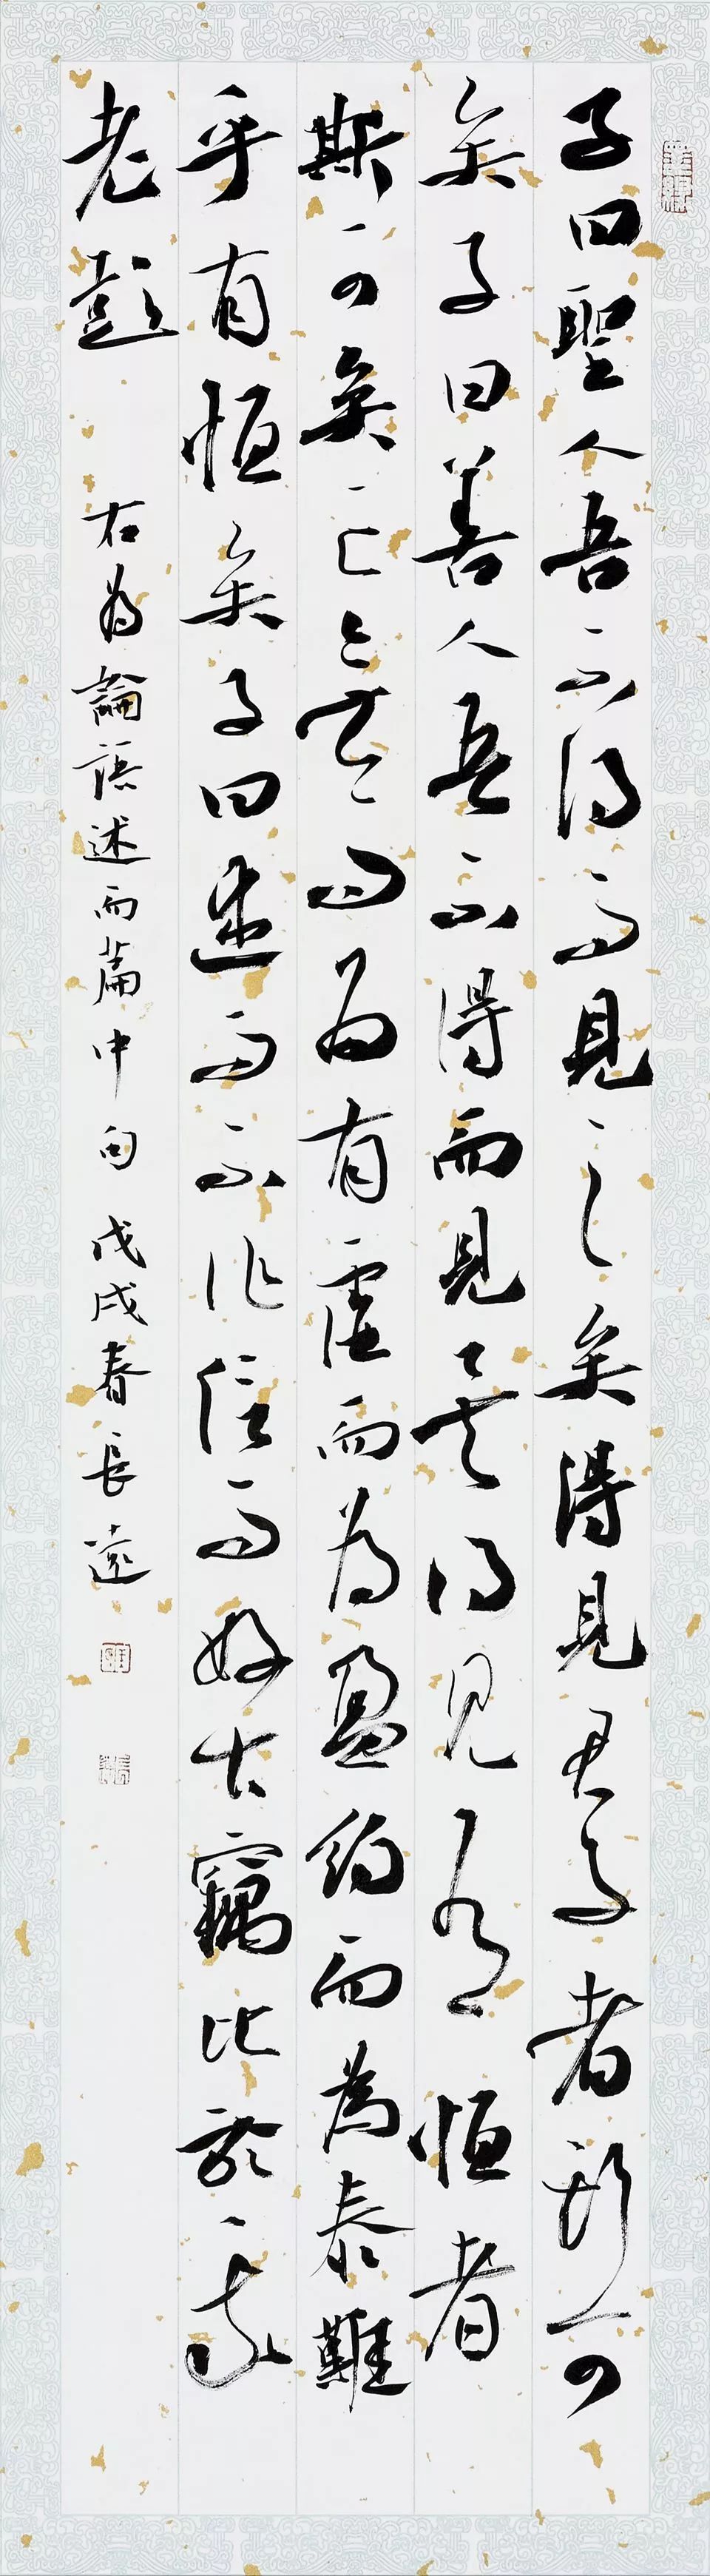 子曰聖人吾不得而見之矣得見君子者斯可
矣子曰善人吾不得而見之矣得見有恒者
斯可矣亡而為有虛而為盈約而為泰難
乎有恒矣子曰述而不作信而好古竊比於我
老彭 右為論語述而篇中句 戊戌春長遠